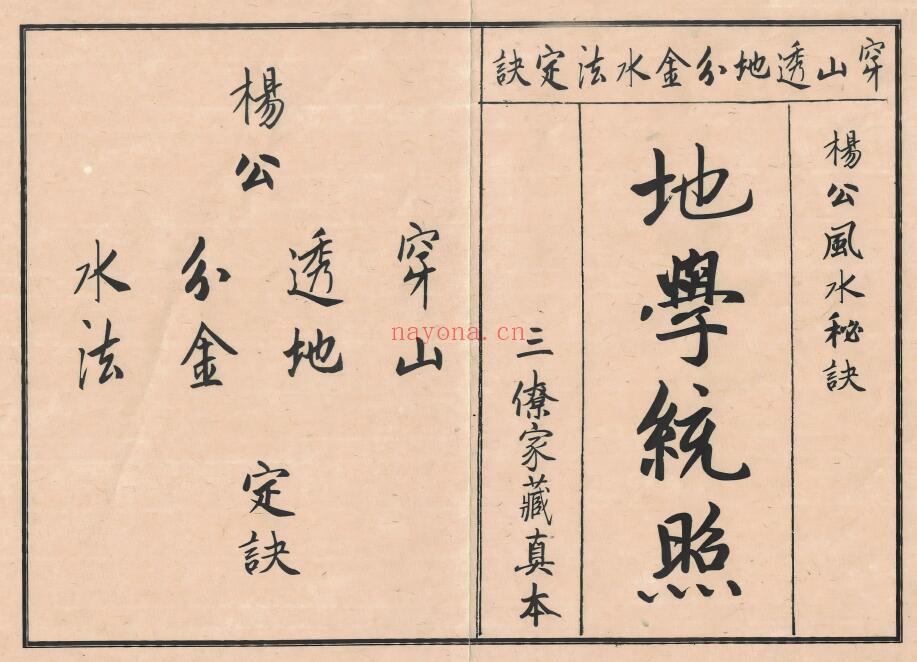 穿山透地分金水法定訣
楊公風水秘訣
地學統照
三僚家藏真本
楊公
穿山
透地
分金
水法
定訣
nayona.cn